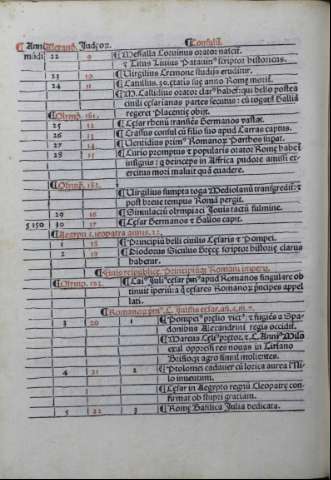 Anni Alexand. Iudeorũ. Consules.
mũdi 22 9 ¶Messalla Corvinus orator nascit̃.
& Titus Livius Patavinꝰ scriptor historicus.
23 10 ¶Virgilius Cremone studijs eruditur.
24 11 ¶Catullus. 30. etatis sue anno Rome morit̃.
¶M. Callidius orator clarꝰ habet̃
civili cesarianas partes secutus: cũ togatã Galliã
regeret Placentie obijt.
¶Olymp. 181.
25 12 ¶Cesar rhenũ transiẽs Germanos vastat.
26 13 ¶Crassus consul cũ filio suo apud Carras captus.
27 14 Romanorũ Parthos supat.
28 15 ¶Curio promptus & popularis orator Rome habet̃
insignis: q deinceps in Affrica pudore amissi ex-
ercitus mori maluit quã evadere.
¶Olymp. 182.
¶Virgilius sumpta toga Mediolanũ transgredit̃: &
post breve tempus Romã pergit.
29 16 ¶Simulacrũ olympiaci Iovis tactũ fulmine.
5150 30 17 ¶Cesar Germanos & Gallos capit.
¶Aegypti Cleopatra annis. 22.
1 18 ¶Principiũ belli civilis Cesaris & Pompei.
2 19 ¶Diodorus Siculus Grece scriptor historie clarus
habetur.
¶Finis reipublice. Principiũq̃ Romani imperij.
¶Olymp. 183. ¶Caiꝰ Iuliꝰ cesar primꝰ apud Romanos singulare ob
tinuit imperiũ: a q̊ cesares Romanorũ principes appel
lati.
¶Romanorũ primꝰ C. Iulius cesar. an. 4. m. 7.
3 20 1 ¶Pompeiꝰ prelio victꝰ: & fugiẽs a Spa-
donibus Alexandrini regis occidit̃.
¶Marcus Celiꝰ pretor, & T. Anniꝰ Milo
exul oppressi res novas in Turiano
Brutioq̃ agro simul molientes.
4 21 2 ¶Ptolomei cadaver cũ lorica aurea ĩ Ni-
lo inventum.
¶Cesar in Aegypto regnũ Cleopatre con-
firmat ob stupri gratiam.
5 22 3 ¶Rome Basilica Iulia dedicata.